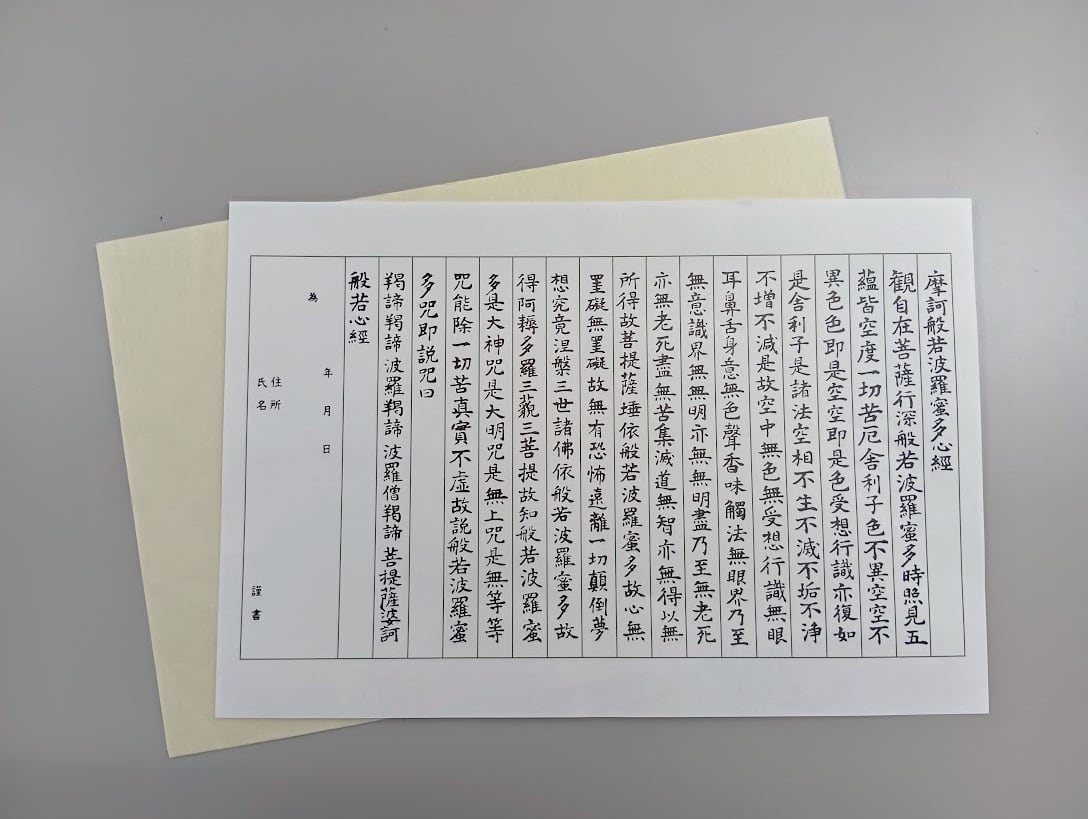 摩訶般若波羅蜜多心經
観自在菩薩行深般若波羅蜜多時照見五
蘊皆空度一切苦厄舎利子色不異空空不
異色色即是空空即是色受想行識亦復如
是舎利子是諸法空相不生不滅不垢不浄
不増不減是故空中無色無受想行識無眼
耳鼻舌身意無色聲香味觸法無眼界乃至
無意識界無無明亦無無明盡乃至無老死
亦無老死盡無苦集滅道無智亦無得以無
所得故菩提薩埵依般若波羅蜜多故心無
罣礙無罣礙故無有恐怖遠離一切顛倒夢
想究竟涅槃三世諸佛依般若波羅蜜多故
得阿耨多羅三藐三菩提故知般若波羅蜜
多是大神咒是大明咒是無上咒是無等等
咒能除一切苦真實不虚故説般若波羅蜜
多咒即説咒曰
羯諦羯諦波羅羯諦波羅僧羯諦菩提薩婆訶
般若心經
為
年月日
住所
氏名
謹書